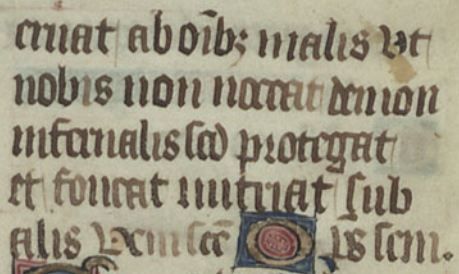 eruat ab oĩb; malis Vt
nobis non noceat demon
infernalis sed protegat
et foueat nutriat sub
alis